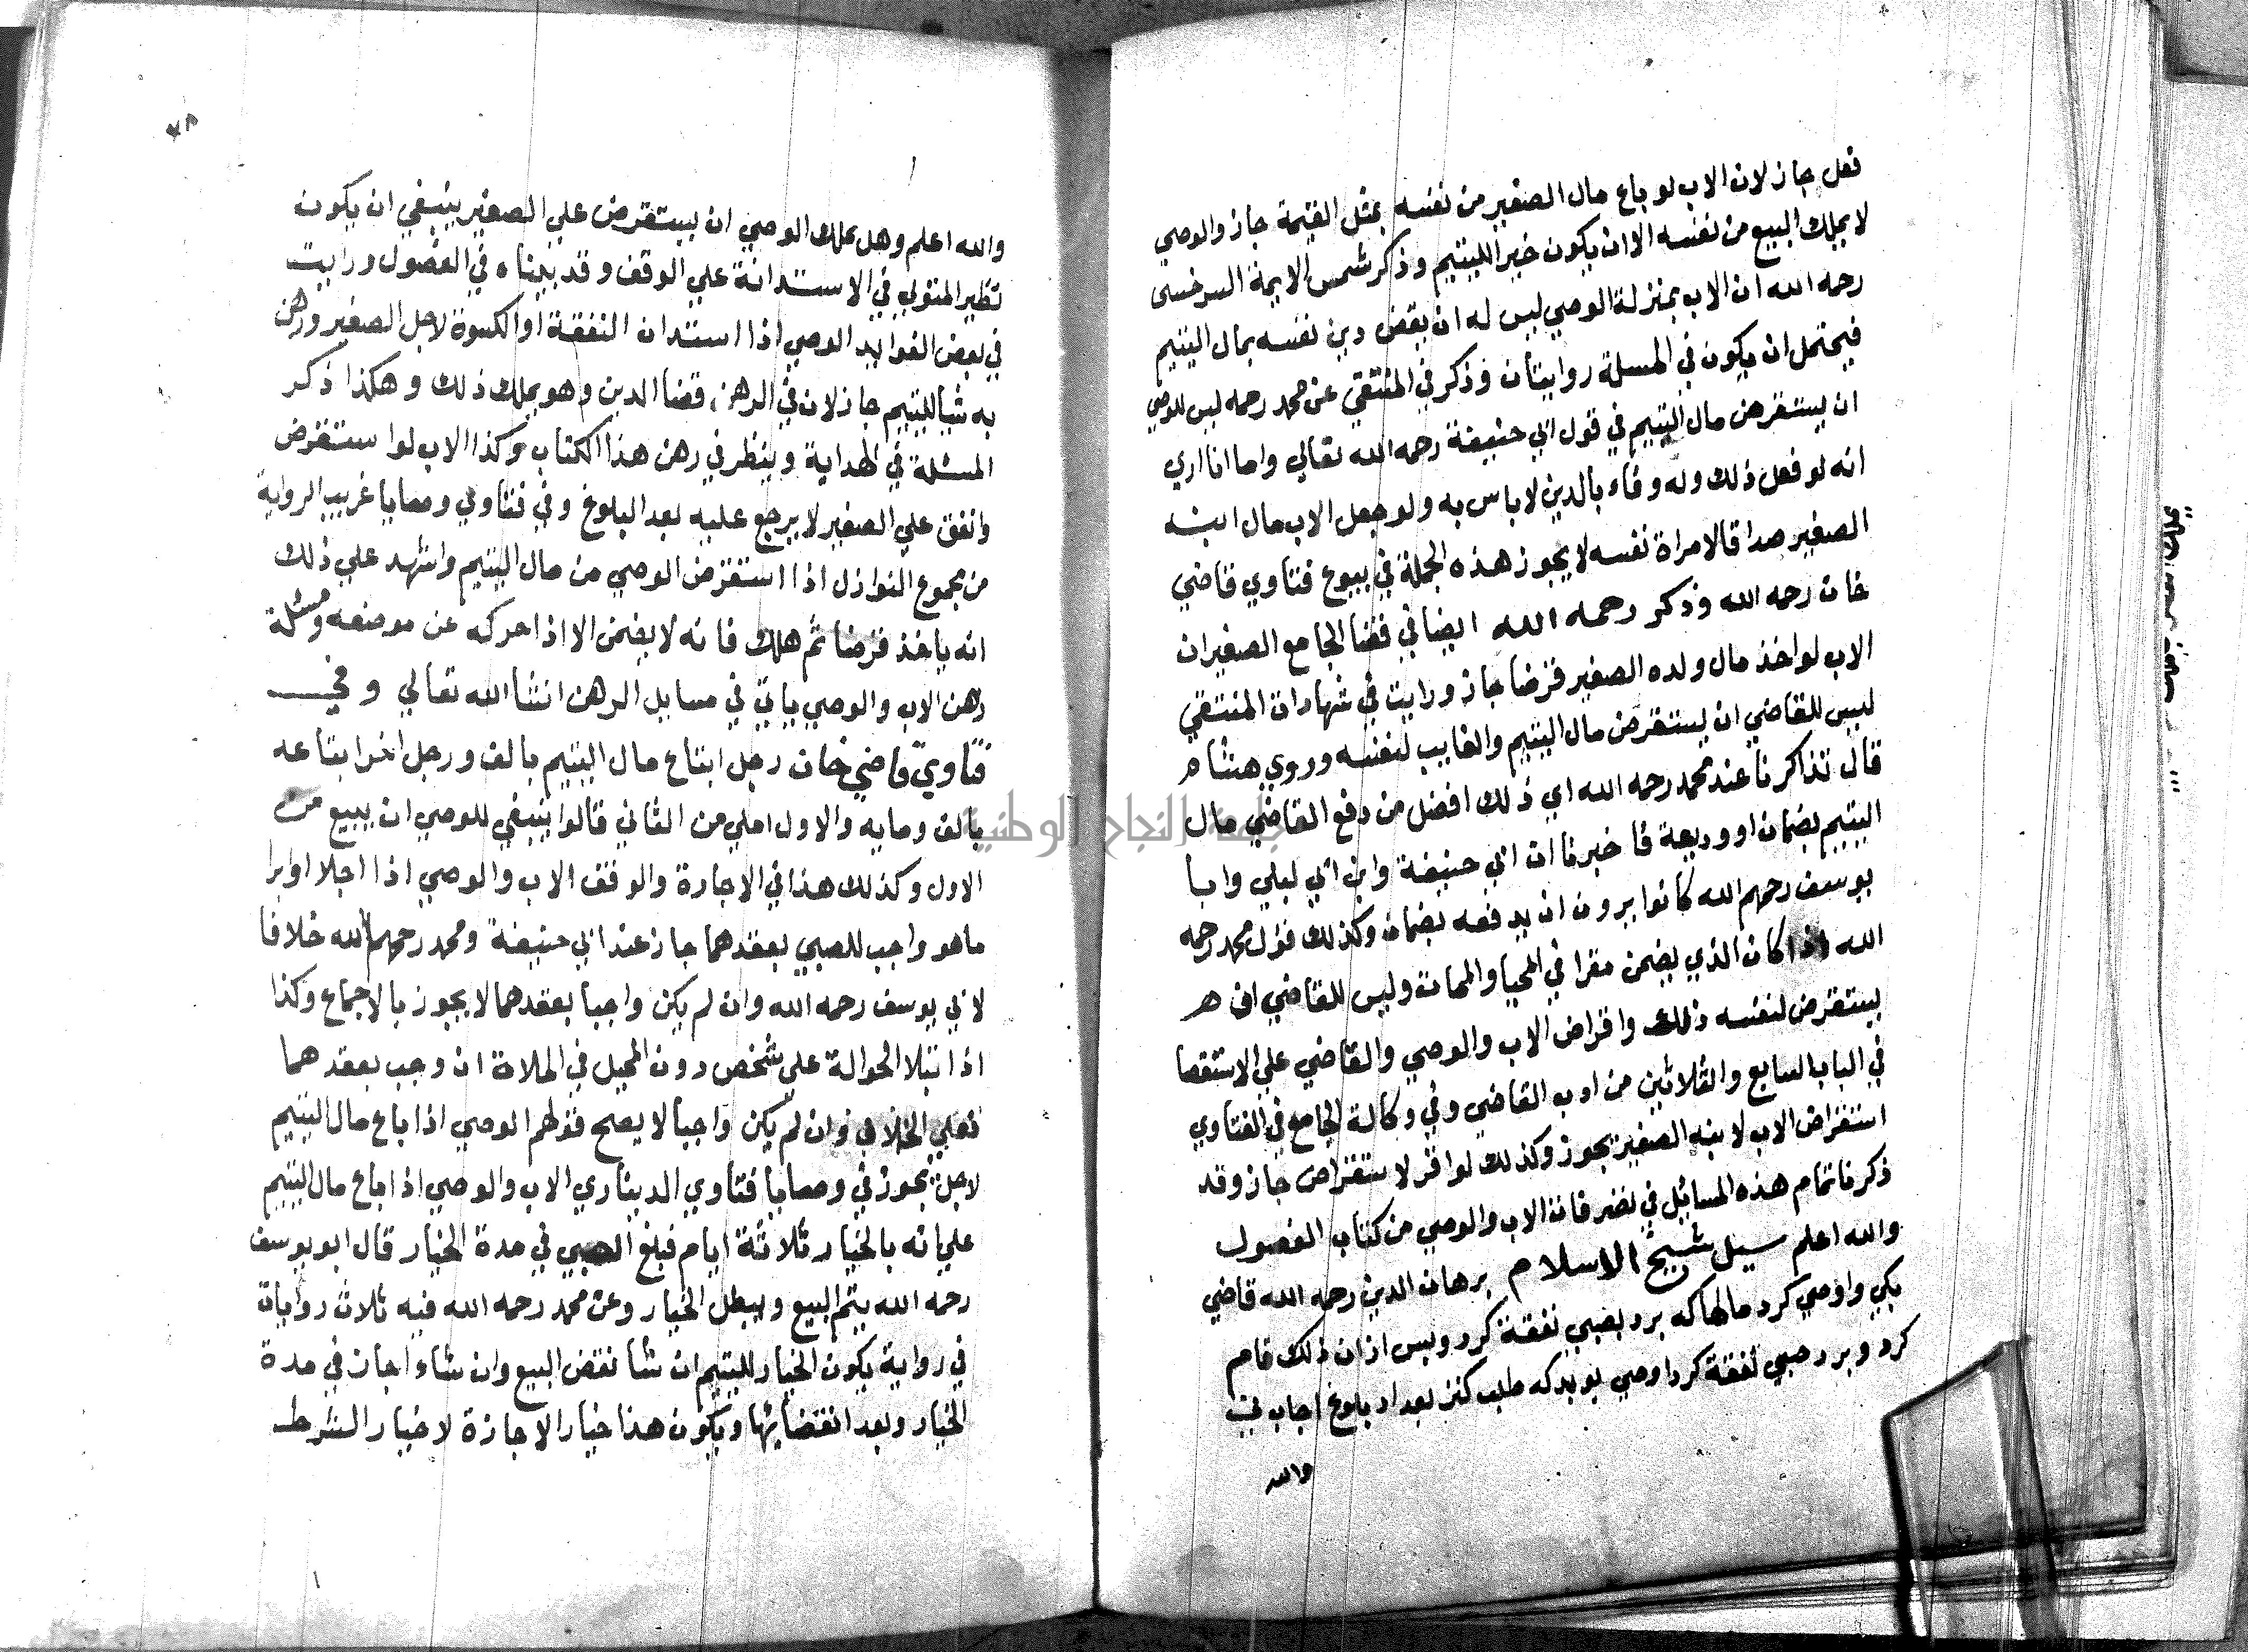 فعل جاز لان الاب لو باع مال الصغير من نفسه بمثل القيمة جاز والوصي
لا يملك البيع من نفسه الا ان يكون خيرا لليتيم وذكر شمس الايمة السرخسى
رحمه الله ان الاب بمنزلة الوصي ليس له ان يقض دين نفسه بمال اليتيم
فيحتمل ان يكون في المسلة روايتان وذكر في المنتقي عن محمد رحمه ليس للوصي
ان يستقرض مال اليتيم في قول ابي حنيفة رحمه الله تعالي واما انا اري
انه لو فعل ذلك وله وفاء بالدين لا باس به ولو جعل الاب مال ابنه
الصغير صداقا لامراة نفسه لا يجوز هذه الجملة في بيوع فتاوي قاضي
خان رحمه الله وذكر رحمه الله ايضا في قضا الجامع الصغير ان
الاب لو اخذ مال ولده الصغير قرضا جاز ورايت في شهادات المنتقي
ليس للقاضي ان يستقرض مال اليتيم والغايب لنفسه وروي هشام
قال تذاكرنا عند محمد رحمه الله اي ذلك افضل من دفع القاضي مال
اليتيم بضمان او وديعة فاخبرنا ان ابي حنيفة وابن ابي ليلي وابا
يوسف رحمهم الله كانوا يرون ان يدفعه بضمان وكذلك قول محمد رحمه
الله اذا كان الذي يضمن مقرا في المحيا والممات وليس للقاضي ان
يستقرض لنفسه ذلك واقراض الاب والوصي والقاضي علي الاستقصا
في الباب السابع والثلاثين من ادب القاضي وفي وكالة الجامع في الفتاوي
استقراض الاب لابنه الصغير يجوز وكذلك لو اقر لاستقراض جاز وقد
ذكرنا تمام هذه المسائل في تصرفات الاب والوصي من كتاب الفصول
والله اعلم سيل شيخ الاسلام برهان الدين رحمه الله قاضي
يكي واوصي كرد مالها كه بر د بصبي نفقة كرد وبس از ان ذلك قام
كرد و بر د صبي نفقة كرد اوصي بويد كه طلب كنز بعد از بلوغ اجاب ني
والله
٧٨
والله اعلم وهل يملك الوصي ان يستقرض علي الصغير ينبغي ان يكون
نظير المتولي في الاستدانة علي الوقف وقد بيناه في الفصول ورايت
في بعض الفوايد الوصي اذا استدان النفقة او الكسوة لاجل الصغير ورهن
به شيا لليتيم جاز لان في الرهن قضا الدين وهو يملك ذلك وهكذا ذكر
المسئلة في الهداية وينظر في رهن هذا الكتاب وكذا الاب لو استقرض
وانفق علي الصغير لا يرجع عليه بعد البلوغ وفي فتاوي وصايا غريب الرواية
من مجموع النوازل اذا استقرض الوصي من مال اليتيم واشهد علي ذلك
انه ياخذ قرضا ثم هلك فانه لا يضمن الا اذا حركه عن موضعه ومسئلة
رهن الاب والوصي ياتي في مسايل الرهن انشا الله تعالي وفي
فتاوي قاضي خان رجل ابتاع مال اليتيم بالف ورجل اخر ابتاعه
بالف ومايه والاول املي من الثاني قالوا ينبغي للوصي ان يبيع من
الاول وكذلك هذا في الاجارة والوقف الاب والوصي اذا اجلا او ابرا
ما هو واجب للصبي بعقدهما جاز عند ابي حنيفة ومحمد رحمهم الله خلافا
لابي يوسف رحمه الله وان لم يكن واجبا بعقدهما لا يجوز بالاجماع وكذا
اذا تبلا الحوالة علي شخص دون المحيل في الملاة ان وجب بعقدهما
فعلي الخلاف وان لم يكن واجبا لا يصح قولهم الوصي اذا باع مال اليتيم
لاجل يجوز في وصايا فتاوي الديناري الاب والوصي اذا باع مال اليتيم
علي انه بالخيار ثلاثة ايام فبلغ الصبي في مدة الخيار قال ابو يوسف
رحمه الله يتم البيع ويبطل الخيار وعن محمد رحمه الله فيه ثلاث روايات
في رواية يكون الخيار لليتيم ان شا نقض البيع وان شاء اجاز في مدة
الخيار وبعد انقضايها ويكون هذا خيار الاجازة لا خيار الشرط
جامعة النجاح الوطنية